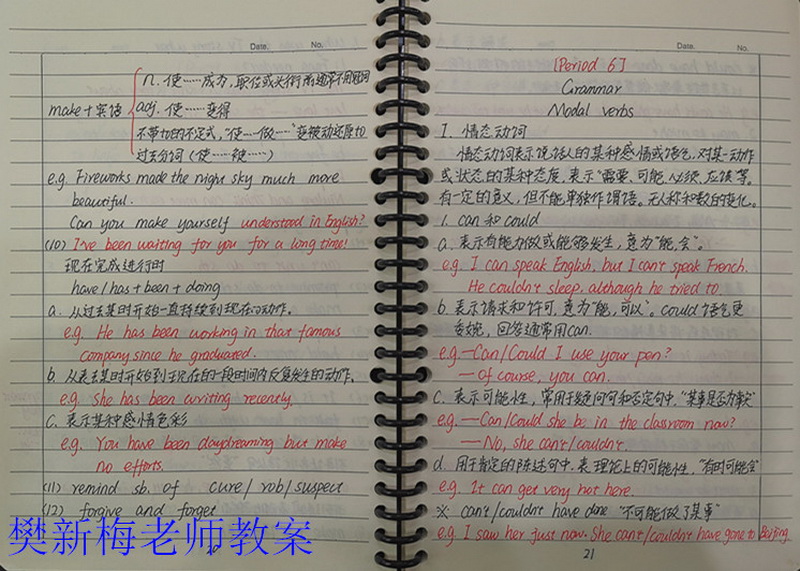 Date. No.
n. 使……成为, 职位或头衔前通常不用冠词
make+宾语 adj. 使……变得
不带to的不定式, "使…做…" 变被动还原to
过去分词 (使……被……)
e.g. Fireworks made the night sky much more
beautiful.
Can you make yourself understood in English?
(10) I've been waiting for you for a long time!
现在完成进行时
have/has+been+doing
a. 从过去某时开始一直持续到现在的动作。
e.g. He has been working in that famous
company since he graduated.
b. 从过去某时开始到现在的一段时间内反复发生的动作。
e.g. She has been writing recently.
c. 表示某种感情色彩
e.g. You have been daydreaming but make
no efforts.
(11) remind sb. of cure/rob/suspect
(12) forgive and forget
樊新梅老师教案
Date. No.
[Period 6]
Grammar
Modal verbs
I. 情态动词
情态动词表示说话人的某种感情或语气, 对某一动作
或状态的某种态度。表示"需要、可能、必须、应该"等。
有一定的意义, 但不能单独作谓语。无人称和数的变化。
1. can 和 could
a. 表示有能力做或能够发生, 意为"能, 会"。
e.g. I can speak English, but I can't speak French.
He couldn't sleep, although he tried to.
b. 表示请求和许可, 意为"能, 可以"。could 语气更
委婉, 回答通常用can.
e.g. —Can/Could I use your pen?
—Of course, you can.
c. 表示可能性, 常用于疑问句和否定句中, "某事是否为事实"
e.g. —Can/Could she be in the classroom now?
—No, she can't/couldn't.
d. 用于肯定的陈述句中, 表理论上的可能性, "有时可能会"
e.g. It can get very hot here.
※ can't/couldn't have done "不可能做了某事"
e.g. I saw her just now. She can't/couldn't have gone to Beijing.
21